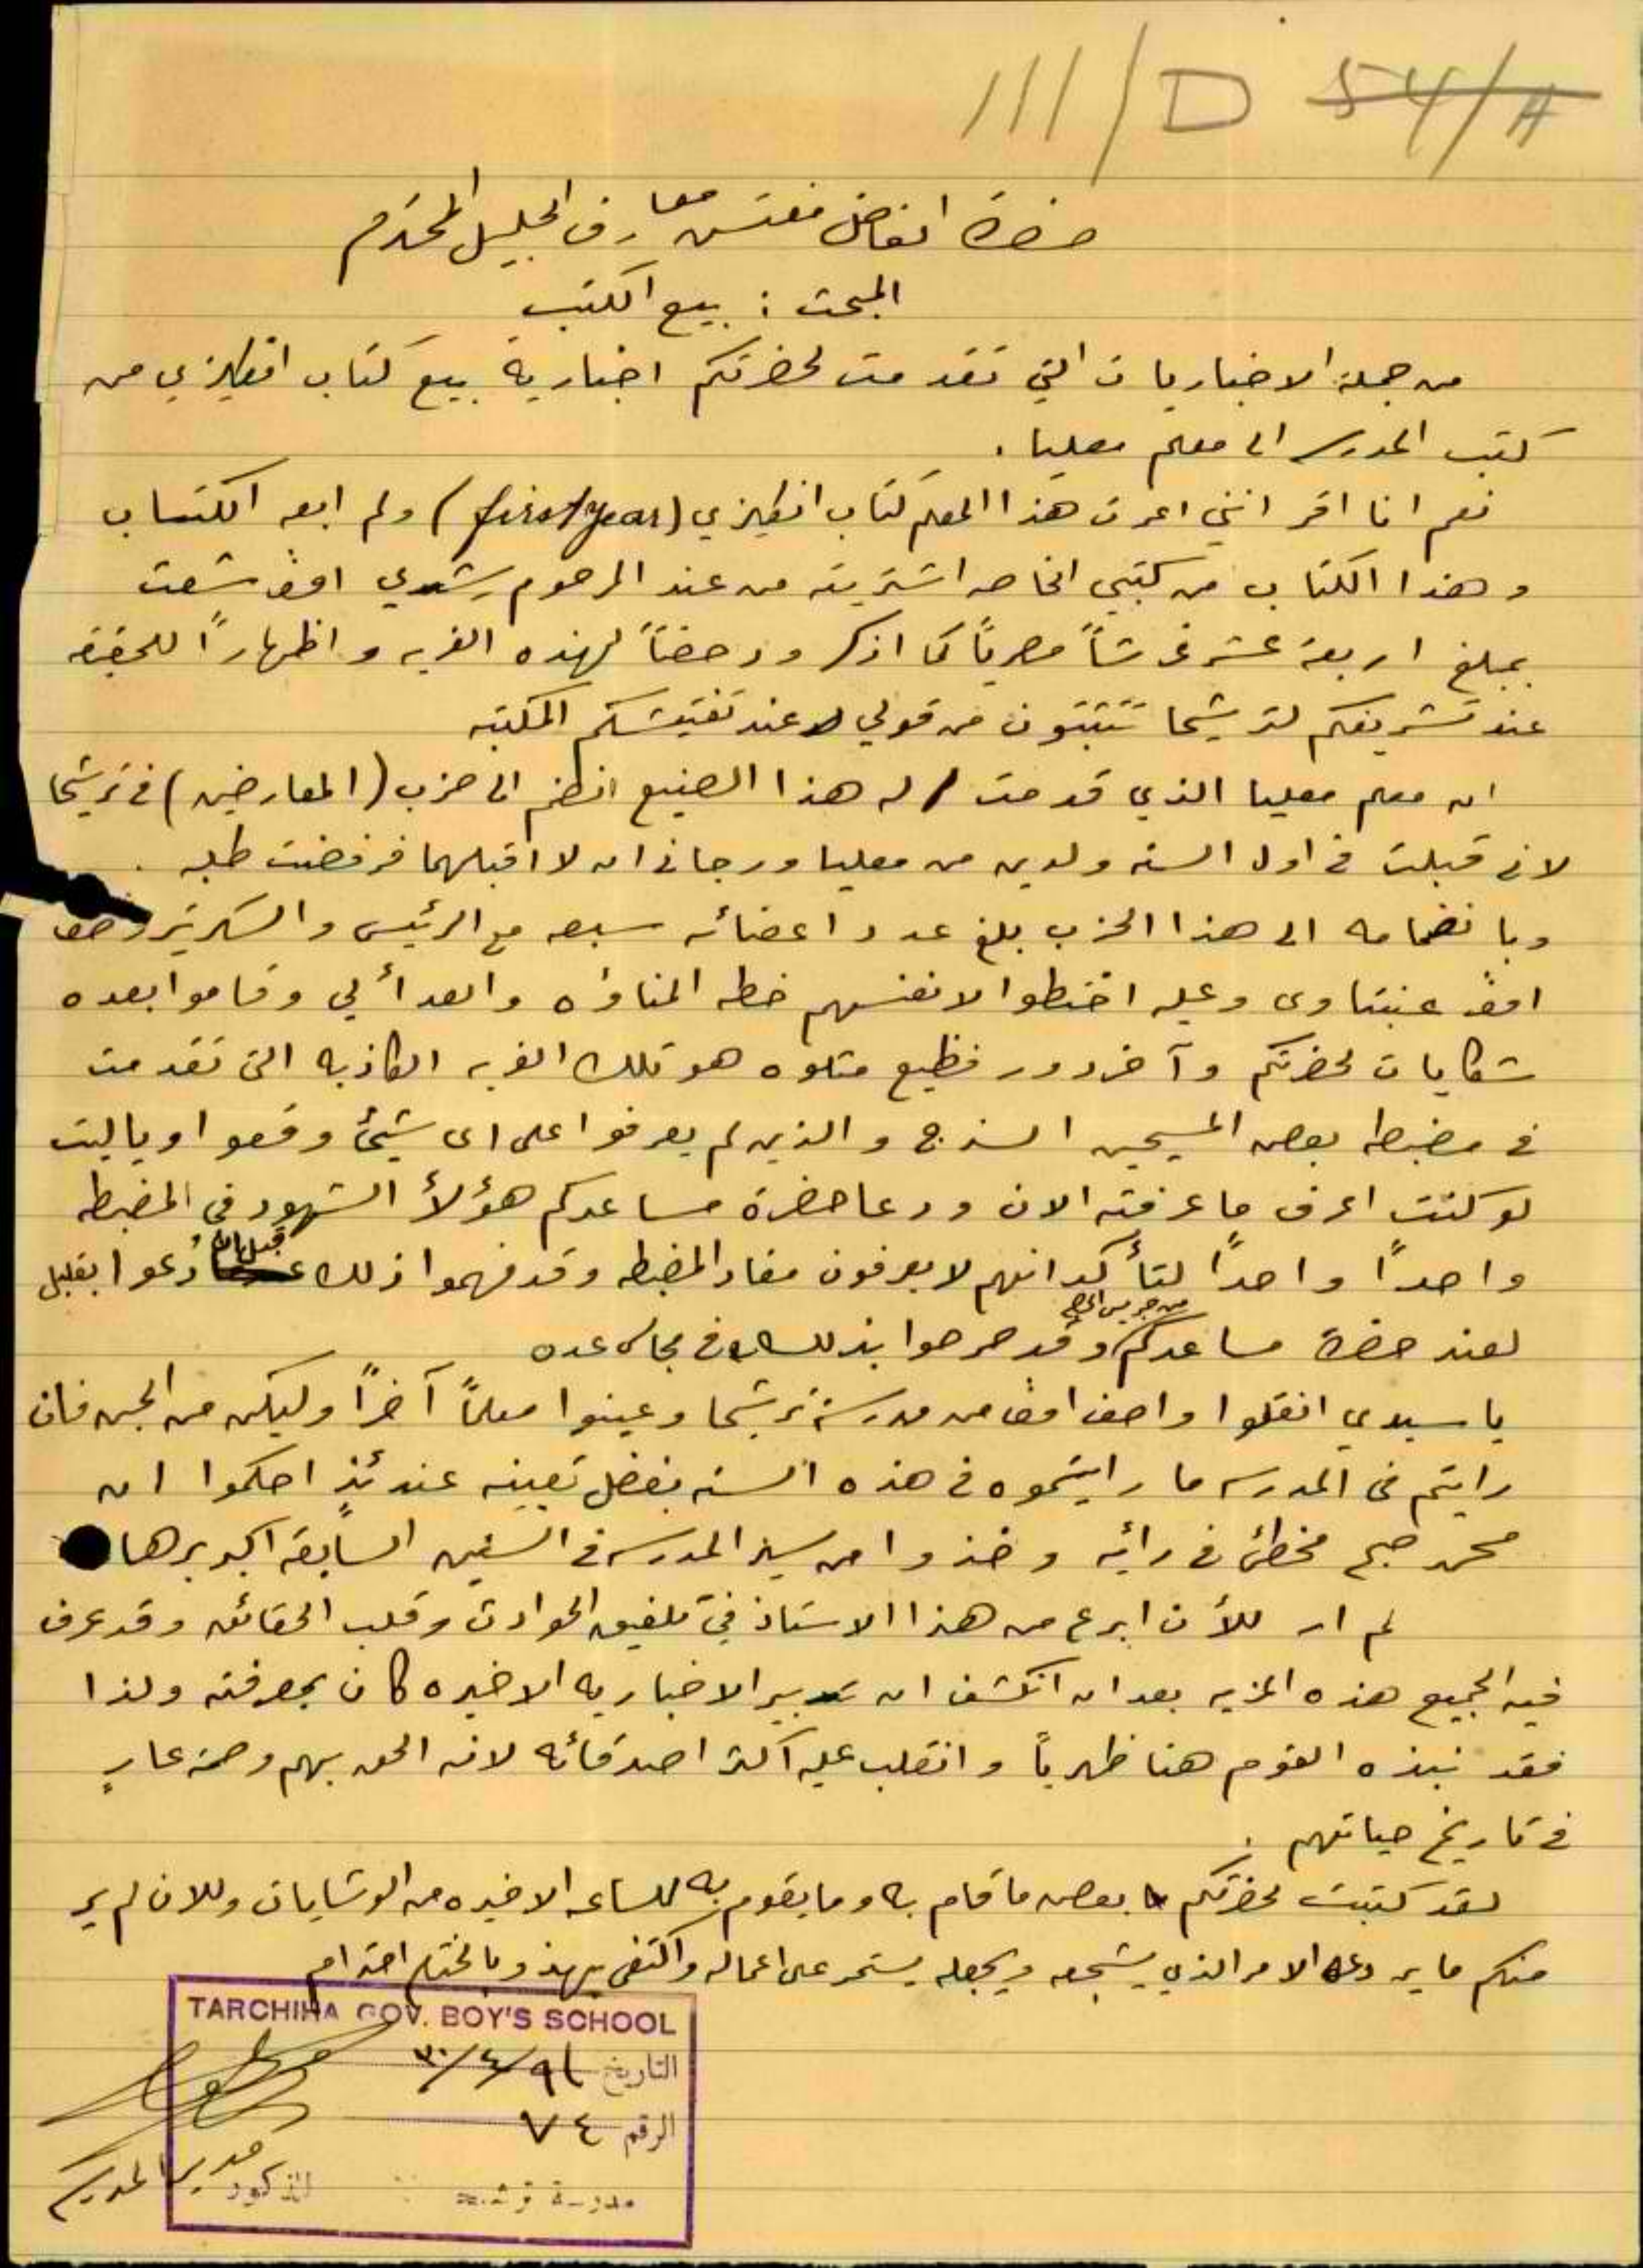 111/D 54/A
حضرة الفاضل مفتش معارف الجليل المحترم
المبحث : بيع الكتب
من جملة الاخباريات التي تقدمت لحضرتكم اخبارية بيع كتاب انكليزي من
كتب المدرسه الى معلم معليا .
نعم انا اقر انني اعرت هذا المعلم كتاب انكليزي (first year) ولم ابعه الكتاب
وهذا الكتاب من كتبي الخاصه اشتريته من عند المرحوم رشدي افه شعت
بمبلغ اربعة عشر غرشاً مصرياً كما اذكر ودحضاً لهذه الفريه واظهاراً للحقيقه
عند تشريفكم لترشيحا تتثبتون من قولي عند تفتيشكم المكتبه
ان معلم معليا الذي قدمت له هذا الصنيع انظم الى حزب (المعارضين) في ترشيحا
لاني قبلت في اول السنه ولدين من معليا ورجاني ان لا اقبلهما فرفضت طلبه .
وبانضمامه الى هذا الحزب بلغ عدد اعضائه سبعه مع الرئيس والسكرتير واصف
افه عنبتاوى وعليه اختطوا لانفسهم خطه المناوأه والعدأ لي وقاموا بعده
شكايات لحضرتكم وآخر دور فظيع مثلوه هو تلك الفريه الكاذبه التي تقدمت
في مضبطه بعض المسيحين السذج والذين لم يعرفوا على اى شيئ وقعوا وياليت
لو كنت اعرف ما عرفته الان ودعا حضرة مساعدكم هؤلأ الشهود في المضبطه
واحداً واحداً لتأكد انهم لا يعرفون مفاد المضبطه وقد فهموا ذلك قبل ان دعوا بقليل
لعند حضرة مساعدكم من جريس الحاج وقد صرحوا بذلك في مجالس عده
يا سيدي انقلوا واصف افه من مدرسة ترشيحا وعينوا معلماً آخراً وليكن من الجن فان
رايتم في المدرسه ما رايتموه في هذه السنه بفضل تعيينه عندئذٍ احكموا ان
محمد صبح مخطئ في رأيه وخذوا من سير المدرسه في السنين السابقه اكبر برهان
لم ار للأن ابرع من هذا الاستاذ في تلفيق الحوادث وقلب الحقائق وقد عرف
فيه الجميع هذه المزيه بعد ان انكشف ان تدبير الاخباريه الاخيره كان بمعرفته ولذا
فقد نبذه القوم هنا ظهرياً وانقلب عليه اكثر اصدقائه لانه الحق بهم وصمة عارٍ
في تاريخ حياتهم .
لقد كتبت لحضرتكم بعض ما قام به وما يقوم به للساعه الاخيره من الوشايات وللان لم ير
منكم ما يردعه الامر الذي يشجعه ويجعله يستمر على اعماله واكتفي بهذا وبالختام احترام
TARCHIHA GOV. BOY'S SCHOOL
التاريخ ٣٠/٤/٢٩
الرقم ٧٤
مدرسة ترشيحا للذكور
مدير المدرسه